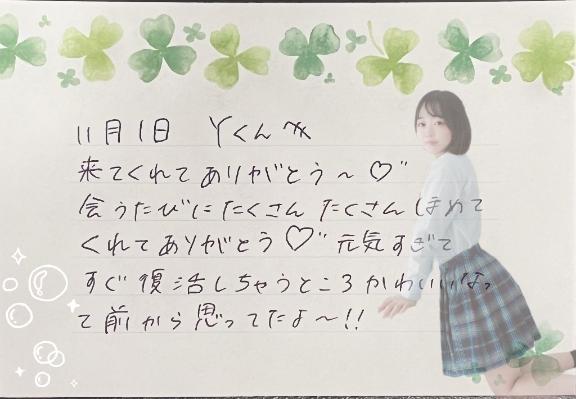 11月1日 Yくん
来てくれてありがとう〜♡"
会うたびにたくさんたくさんほめて
くれてありがとう♡" 元気すぎて
すぐ復活しちゃうところかわいいなっ
て前から思ってたよ〜!!